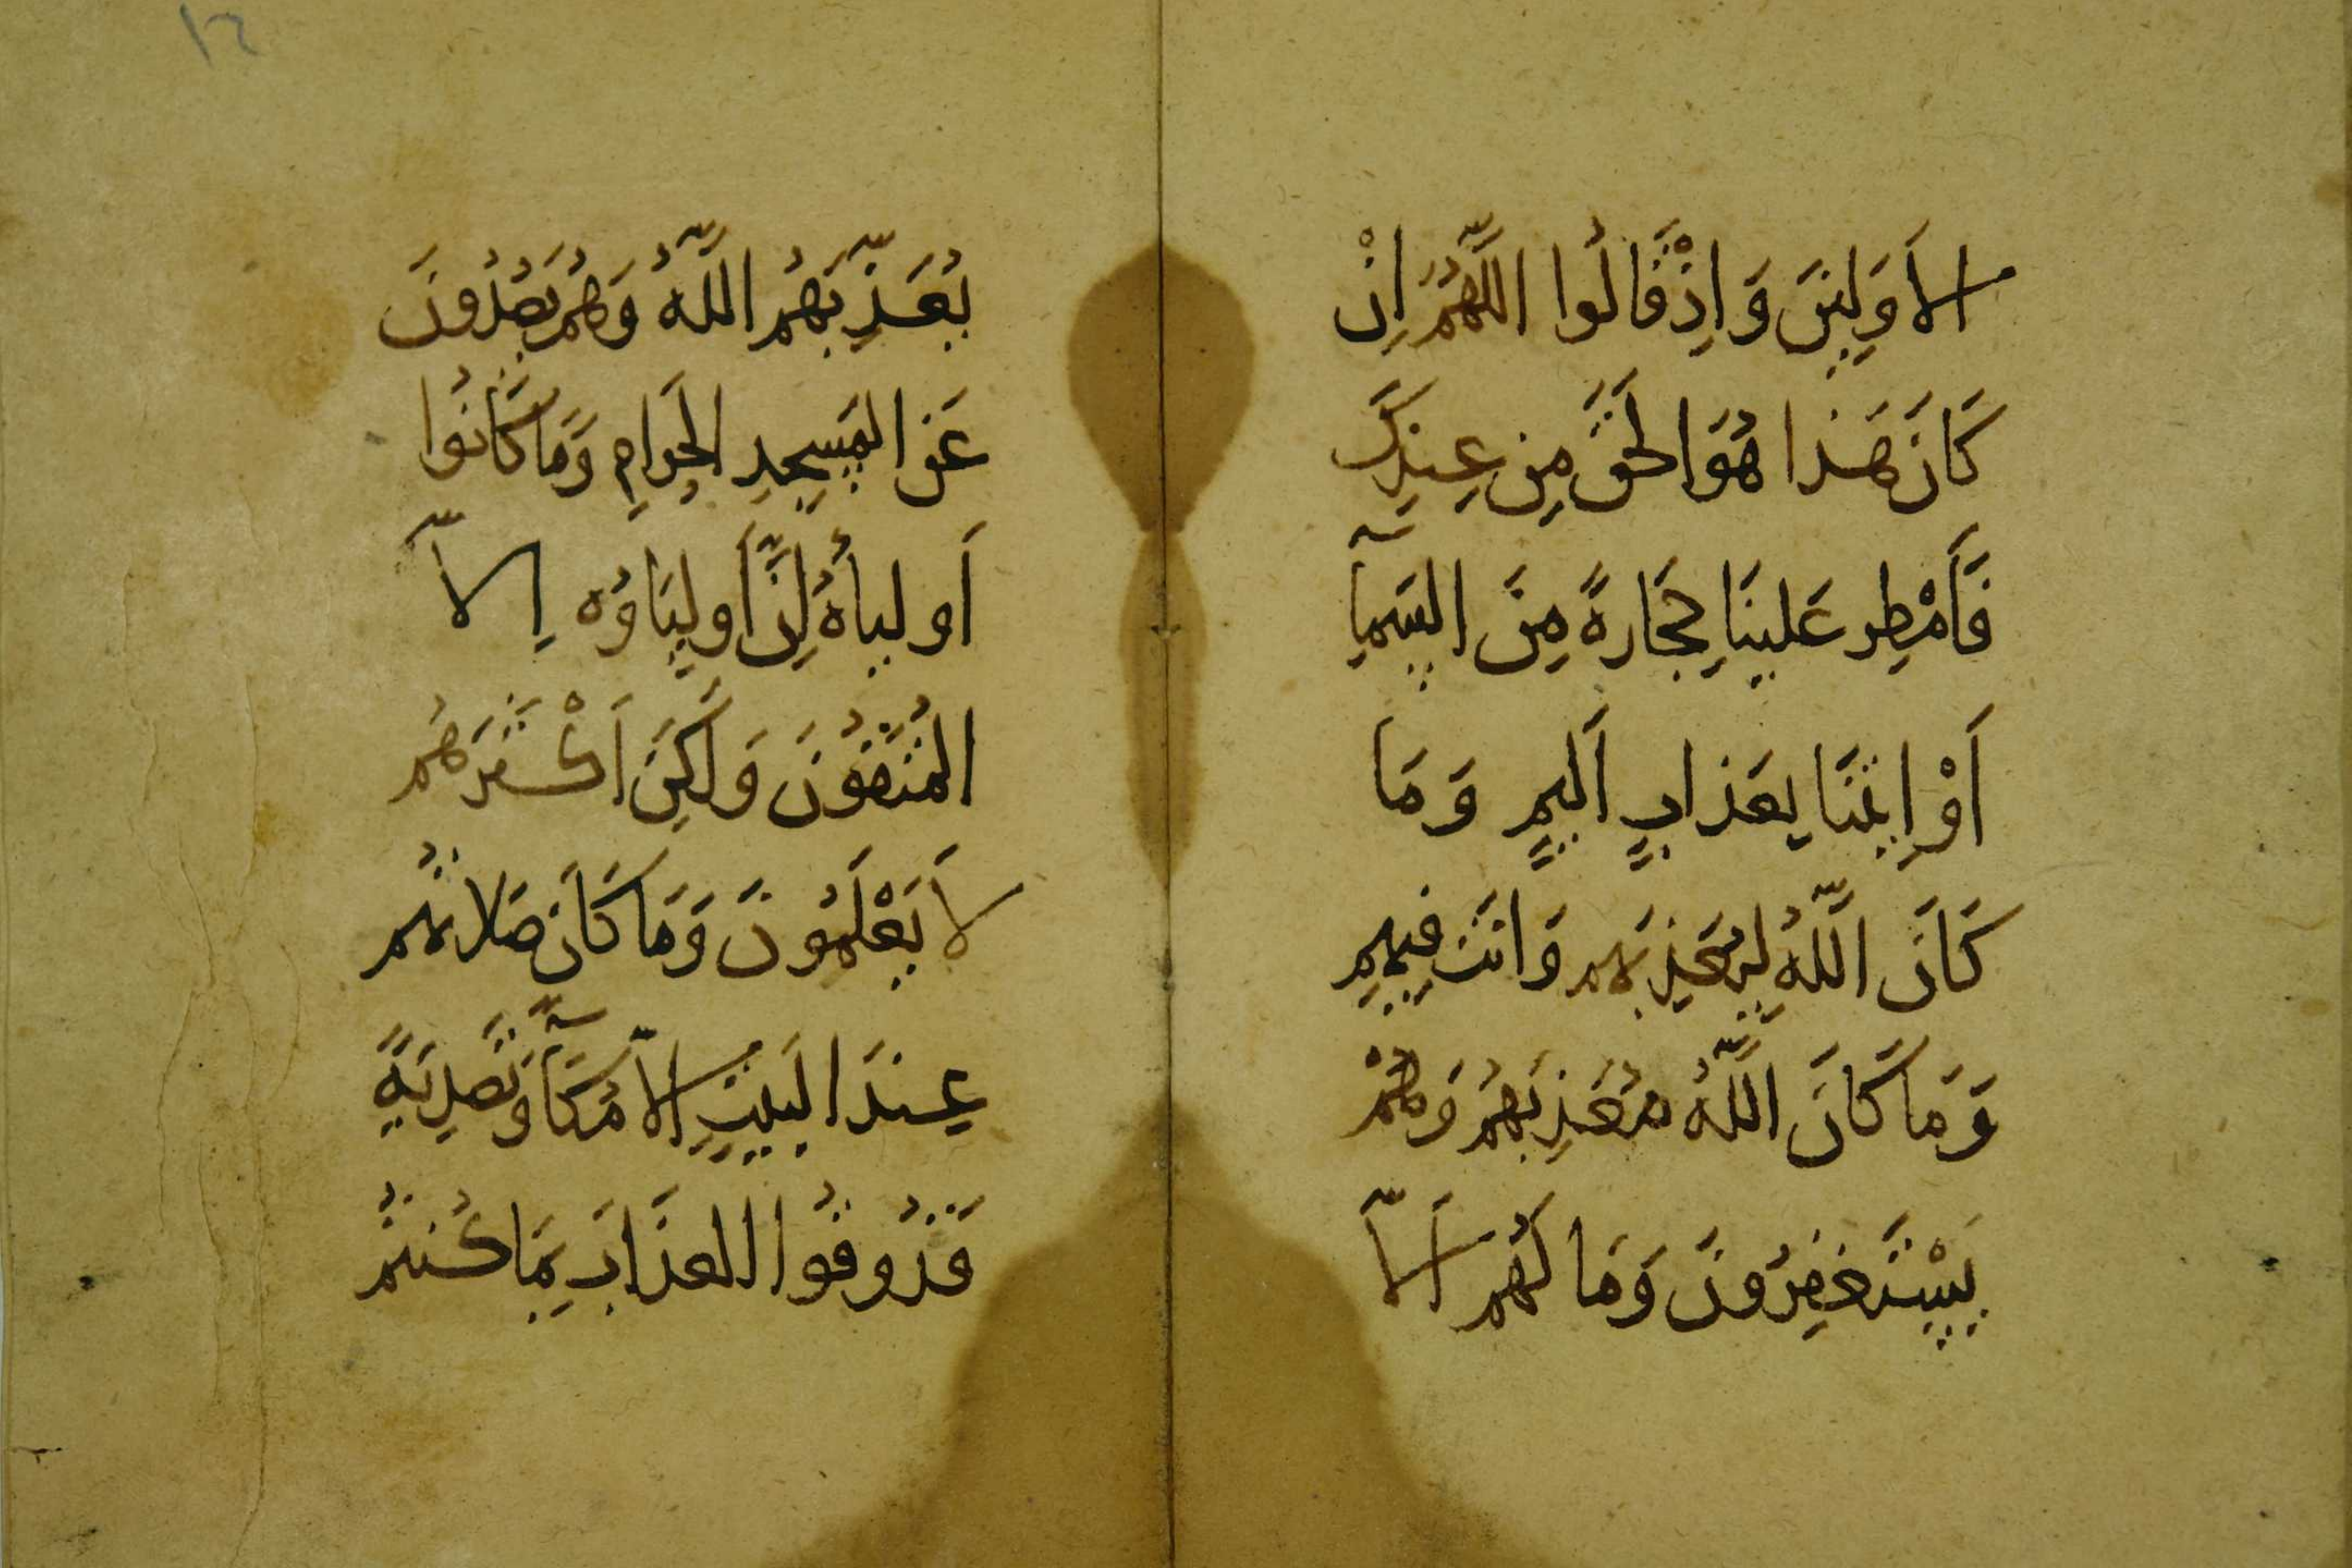 الاَوَلِينَ وَاِذْ قَالُوا اللَّهُمَّ اِنْ
كَانَ هَذَا هُوَ الحَقَّ مِن عِندِكَ
فَأَمْطِر عَلينَا حِجَارةً مِنَ السَمآِ
أَوْ اِيتنَا بِعَذابٍ أَلِيمٍ وَمَا
كَانَ اللَّهُ لِيُعَذِبَهم وَانتَ فِيهِم
وَمَا كَانَ اللَّهُ مُعَذِبَهُم وَهُمْ
يَسْتَغفِرُونَ وَمَا لَهُم اَلاَّ
يُعَذِّبَهُم اللَّهُ وَهُم يَصُدُونَ
عَن المَسجِدِ الحَرامِ وَمَا كَانُوا
أَولِيأهُ اِنَّ أَولِيَاوُه اِلاَّ
المُتَقُونَ وَلَكِنَ اَكْثَرَهُم
لاَ يَعْلَمُونَ وَمَا كَانَ صَلاتهُم
عِندَ البَيتِ الاَّ مُكَآً وَتَصدِيَةً
فَذُوقُوا العَذَابَ بِمَا كُنتُم
١٦